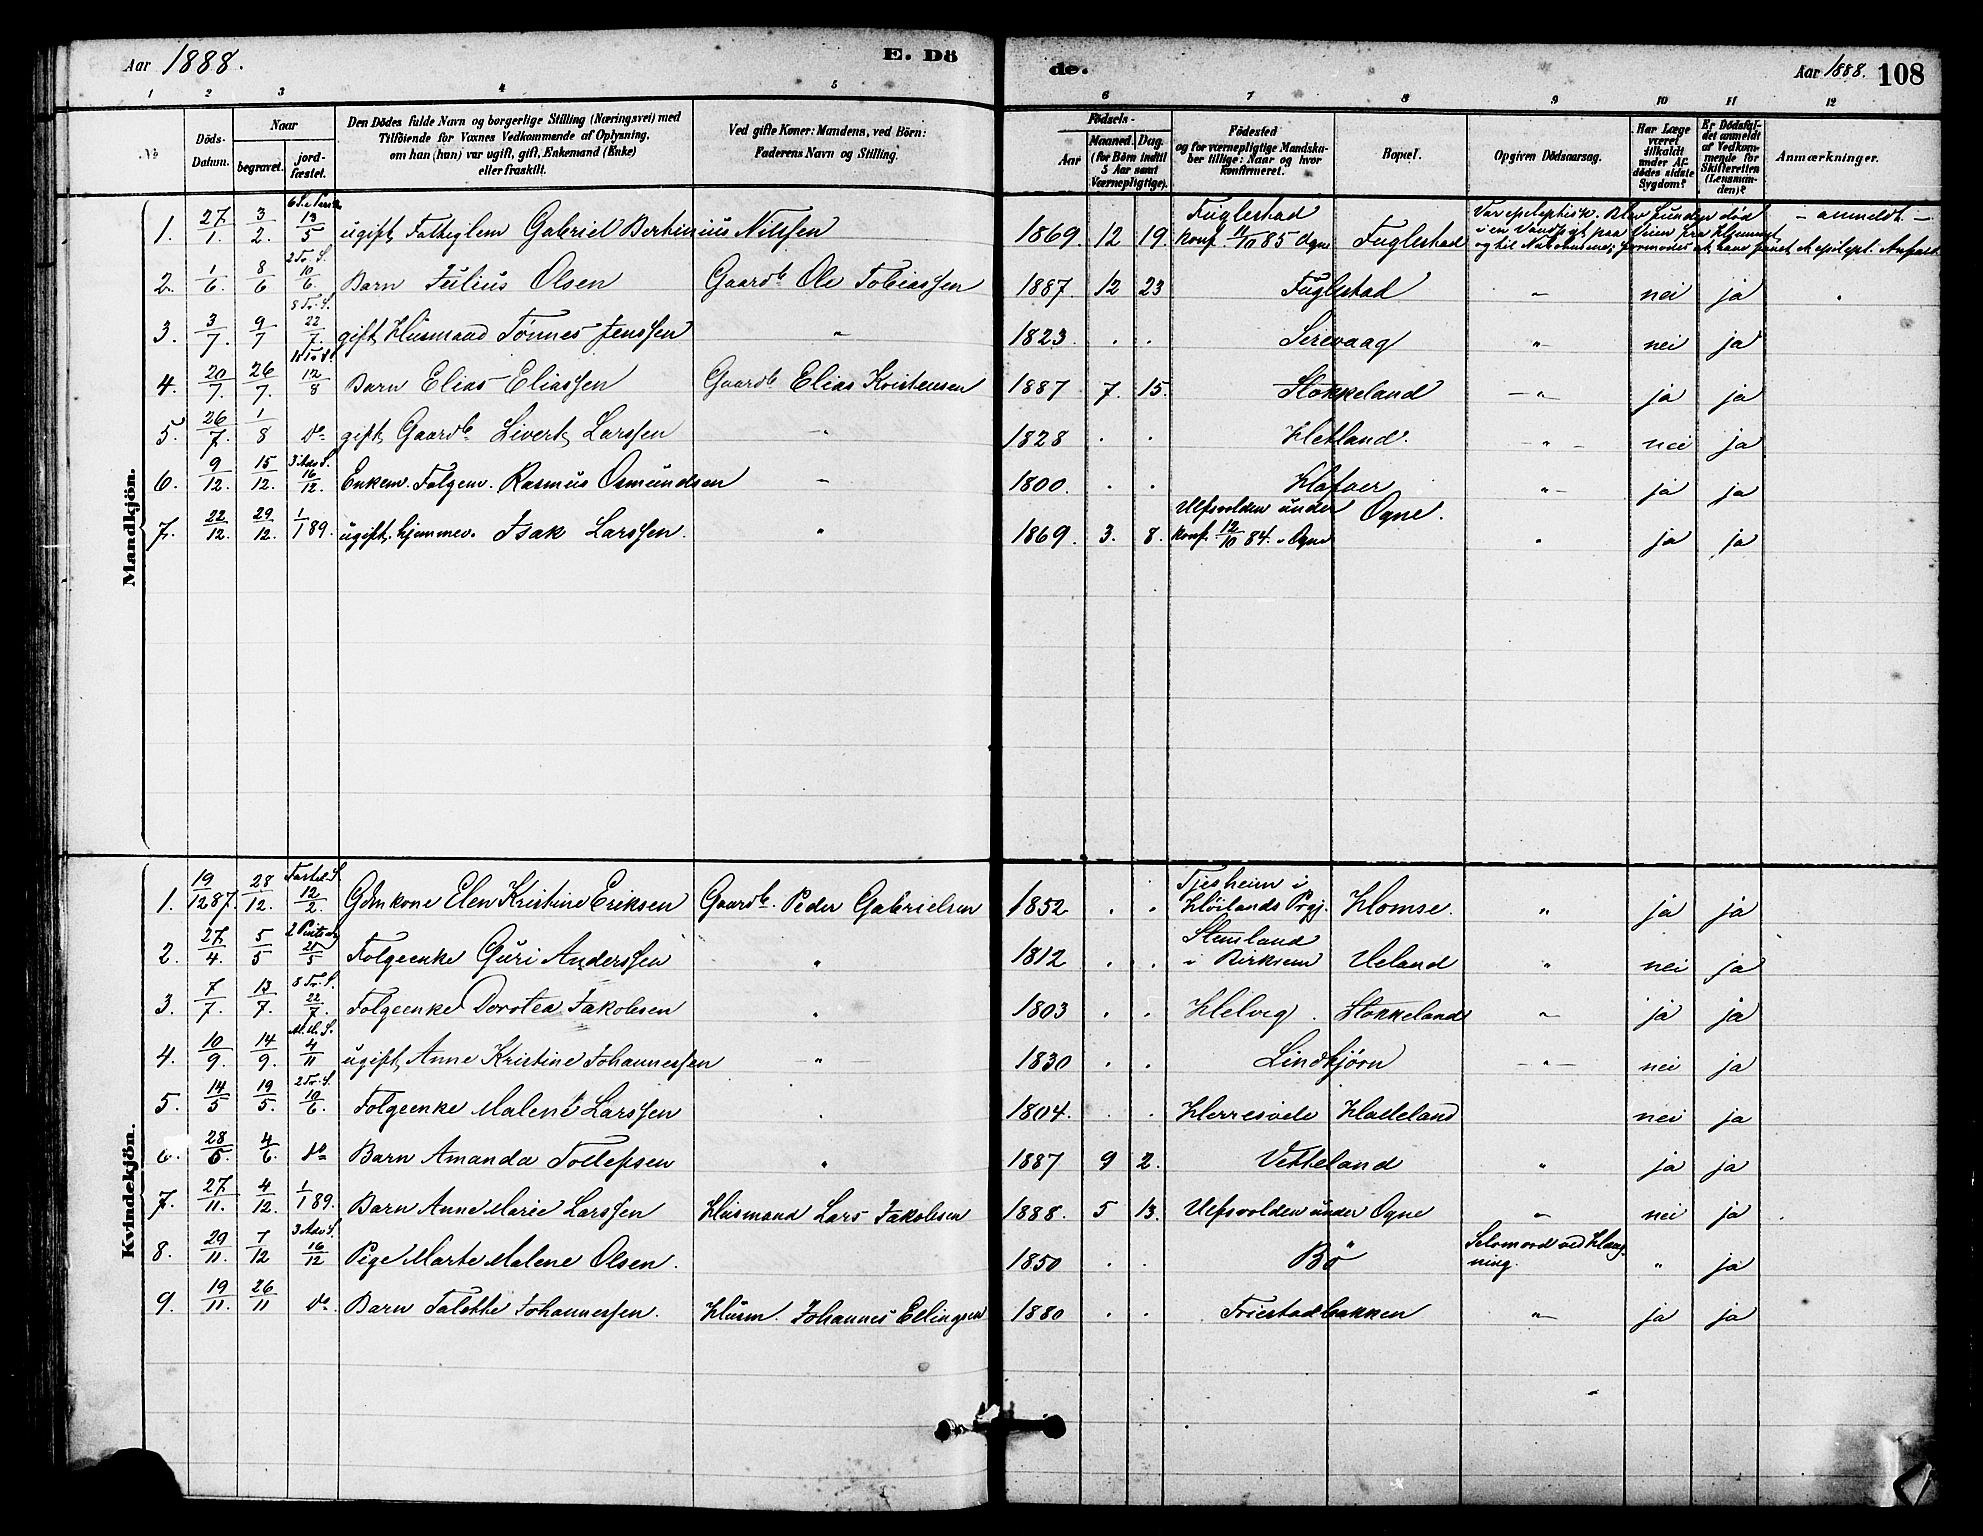 Aar 1888. E. Dö
de. Aar 1888. 108
1 2 3 4 5 6 7 8 9 10 11 12
No
Döds-Datum.
Naar
begravet.
jord-fæstet.
Den Dödes fulde Navn og borgerlige Stilling (Næringsvei) med
Tilföiende for Voxnes Vedkommende af Oplysning,
om han (hun) var ugift, gift, Enkemand (Enke)
eller fraskilt.
Ved gifte Koner: Mandens, ved Börn:
Faderens Navn og Stilling.
Födsels-
Aar
Maaned. Dag.
(for Börn indtil
5 Aar samt
Værnepligtige).
Födested
og for værnepligtige Mandska-
ber tillige: Naar og hvor
konfirmeret.
Bopæl.
Opgiven Dödsaarsag.
Har Læge
været
tilkaldt
under Af-
dödes sidste
Sygdom?
Er Dödsfal-
det anmeldt
af Vedkom-
mende for
Skifteretten
(Lensman-
den)?
Anmærkninger.
Mandkjön.
1. 27/1. 3/2. 13/5 ugift, Fattiglem Gabriel Bertinius Nilssen 1869. 12 19 Fuglestad konf. 11/10 85 Ogne Fuglestad Var epileptisk. Blev funden død i en Vandpyt paa Veien fra Hjemmet og til Naboerne; formodes at have faaet et epilept. Anfald - anmeldt -
2. 1/6. 8/6 2 Tr. S. 10/6. Barn Julius Olsen Gaardb. Ole Tobiassen 1887. 12 23 Fuglestad " nei ja
3. 3/7. 9/7 8 Tr. S. 22/7. gift Husmand Tønnes Jenssen " 1823 . . Sirevaag " nei ja
4. 20/7. 26/7. 12/8 Barn Elias Eliassen Gaardb. Elias Kristensen 1887 7. 15. Stokkeland " ja ja
5. 26/7. 1/8 do gift, Gaardb. Sivert Larssen " 1828 . . Hetland. " nei ja
6. 9/12. 15/12. 3 Adv S. 16/12. Enkem. Folgem. Rasmus Osmundsen " 1800. . . Hafoer " ja ja
7. 22/12. 29/12. 1/1 89. ugift, hjemmev. Isak Larssen. " 1869. 3. 8. Ulfsvolden under konf. 12/10 84. i Ogne Ogne. " ja ja
Kvindekjön.
1. 19/12 87. 28/12. Fastel. S. 12/2. Gdmkone Elen Kristine Eriksen Gaardb. Peder Gabrielsen 1852 . . Tjesheim i Høilands Prgj. Homse. " ja ja
2. 27/4. 5/5 2 Pintsed. 20/5 Folgeenke Guri Anderssen " 1812 . . Stensland i Birkrem Ueland " nei ja
3. 7/7. 13/7. 8 Tr. S. 22/7. Folgeenke Dorotea Jakobsen " 1803 . . Helvig. Stokkeland " ja ja
4. 10/9. 14/9. 4/11 ugift, Anne Kristine Johannessen " 1830 . . Lindtjørn " nei ja
5. 14/5 19/5. 2 Tr. S. 10/6. Folgeenke Malene Larssen . 1804. . . Herresvele Hadeland nei ja
6. 28/5. 4/6. do Barn Amanda Tollefsen " 1887 9 2. Vetteland " ja ja
7. 27/11. 4/12. 1/1 89. Barn Anne Marie Larssen Husmand Lars Jakobsen 1888. 5 13. Ulfsvolden under Ogne " nei ja
8. 29/11. 7/12 3 Adv S. 16/12 Pige Marte Malene Olsen. 1850 . . Bö Selvmord ved Hæng-ning. " ja
9. 19/11. 26/11 do Barn Talette Johannessen. Husm. Johannes Ellingsen 1880 . . Friestadbakken " ja ja